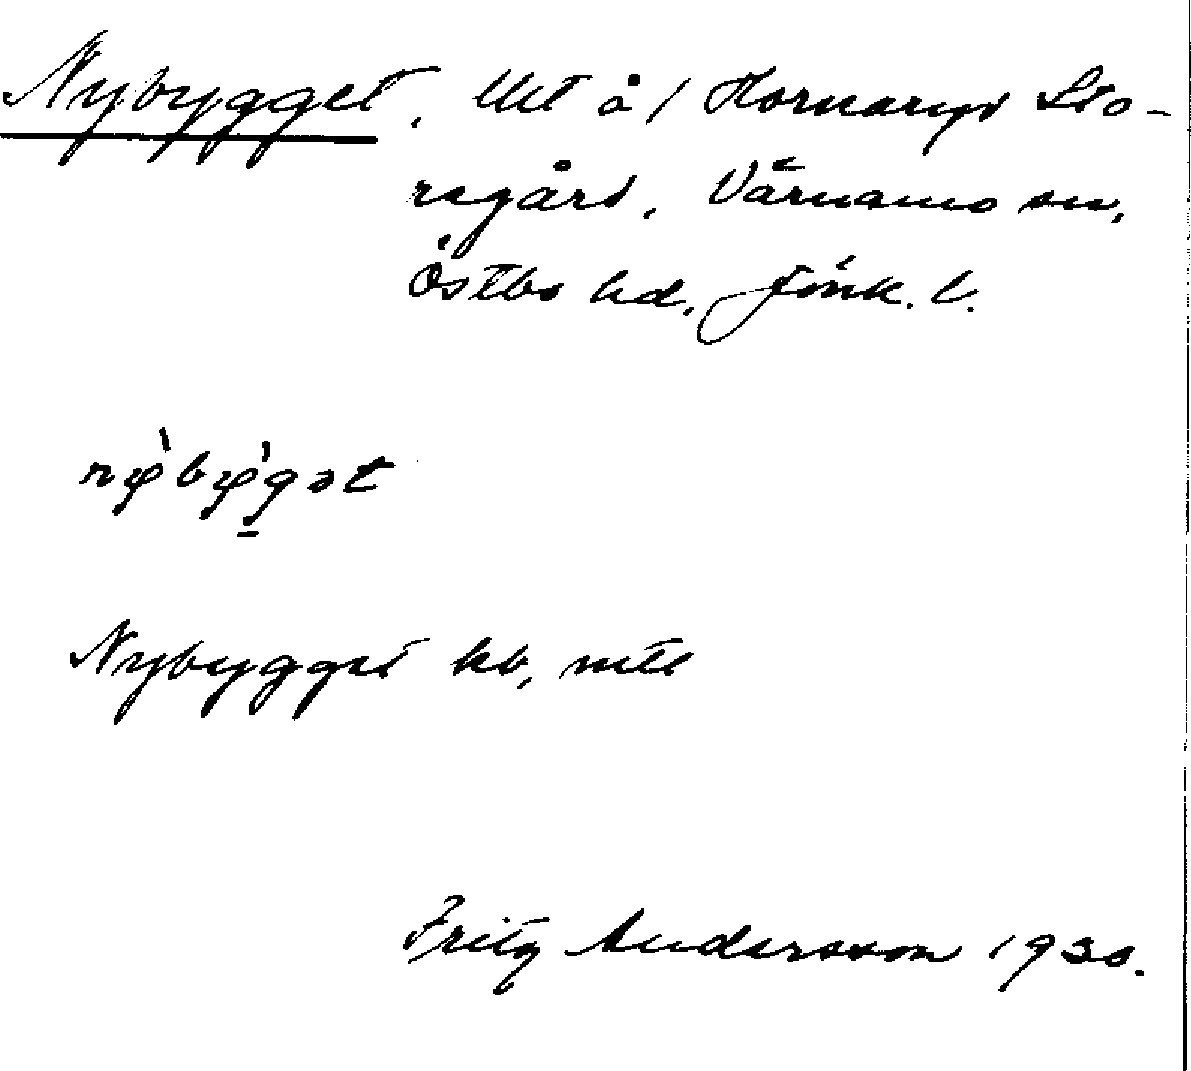 Nybygget. Lht å/ Hornaryd Sto-
regård, Värnamo sn,
Östbo hd, Jönk. l.
nỳbỳgət
Nybygget kb, mtl
Fritz Andersson 1930.